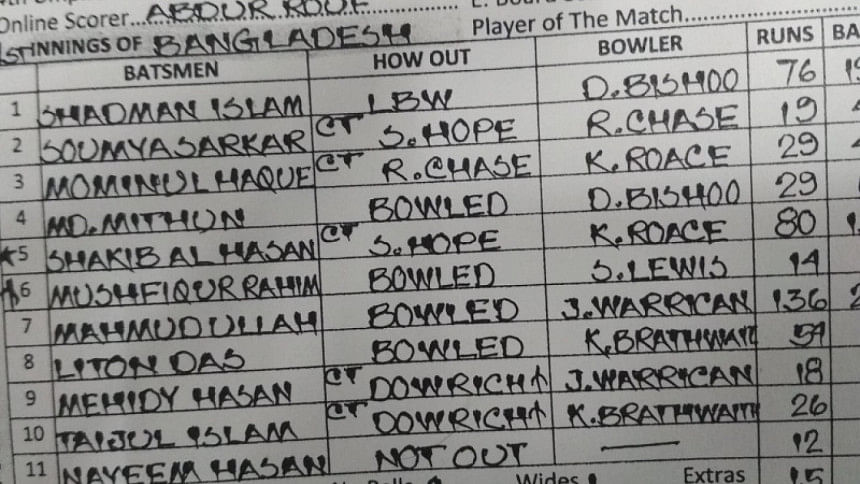 Online Scorer... ABDUR ROUF Player of The Match
1ST INNINGS OF BANGLADESH
BATSMEN HOW OUT BOWLER RUNS BA
1 SHADMAN ISLAM LBW D.BISHOO 76
2 SOUMYA SARKAR CT S.HOPE R.CHASE 19
3 MOMINUL HAQUE CT R.CHASE K.ROACE 29
4 MD.MITHUN BOWLED D.BISHOO 29
*5 SHAKIB AL HASAN CT S.HOPE K.ROACE 80
6 MUSHFIQUR RAHIM BOWLED S.LEWIS 14
7 MAHMUDULLAH BOWLED J.WARRICAN 136
8 LITON DAS BOWLED K.BRATHWAIT
9 MEHIDY HASAN CT DOWRICH J.WARRICAN 18
10 TAIJUL ISLAM CT DOWRICH K.BRATHWAITH 26
11 NAYEEM HASAN NOT OUT — 12
Wides Extras 15